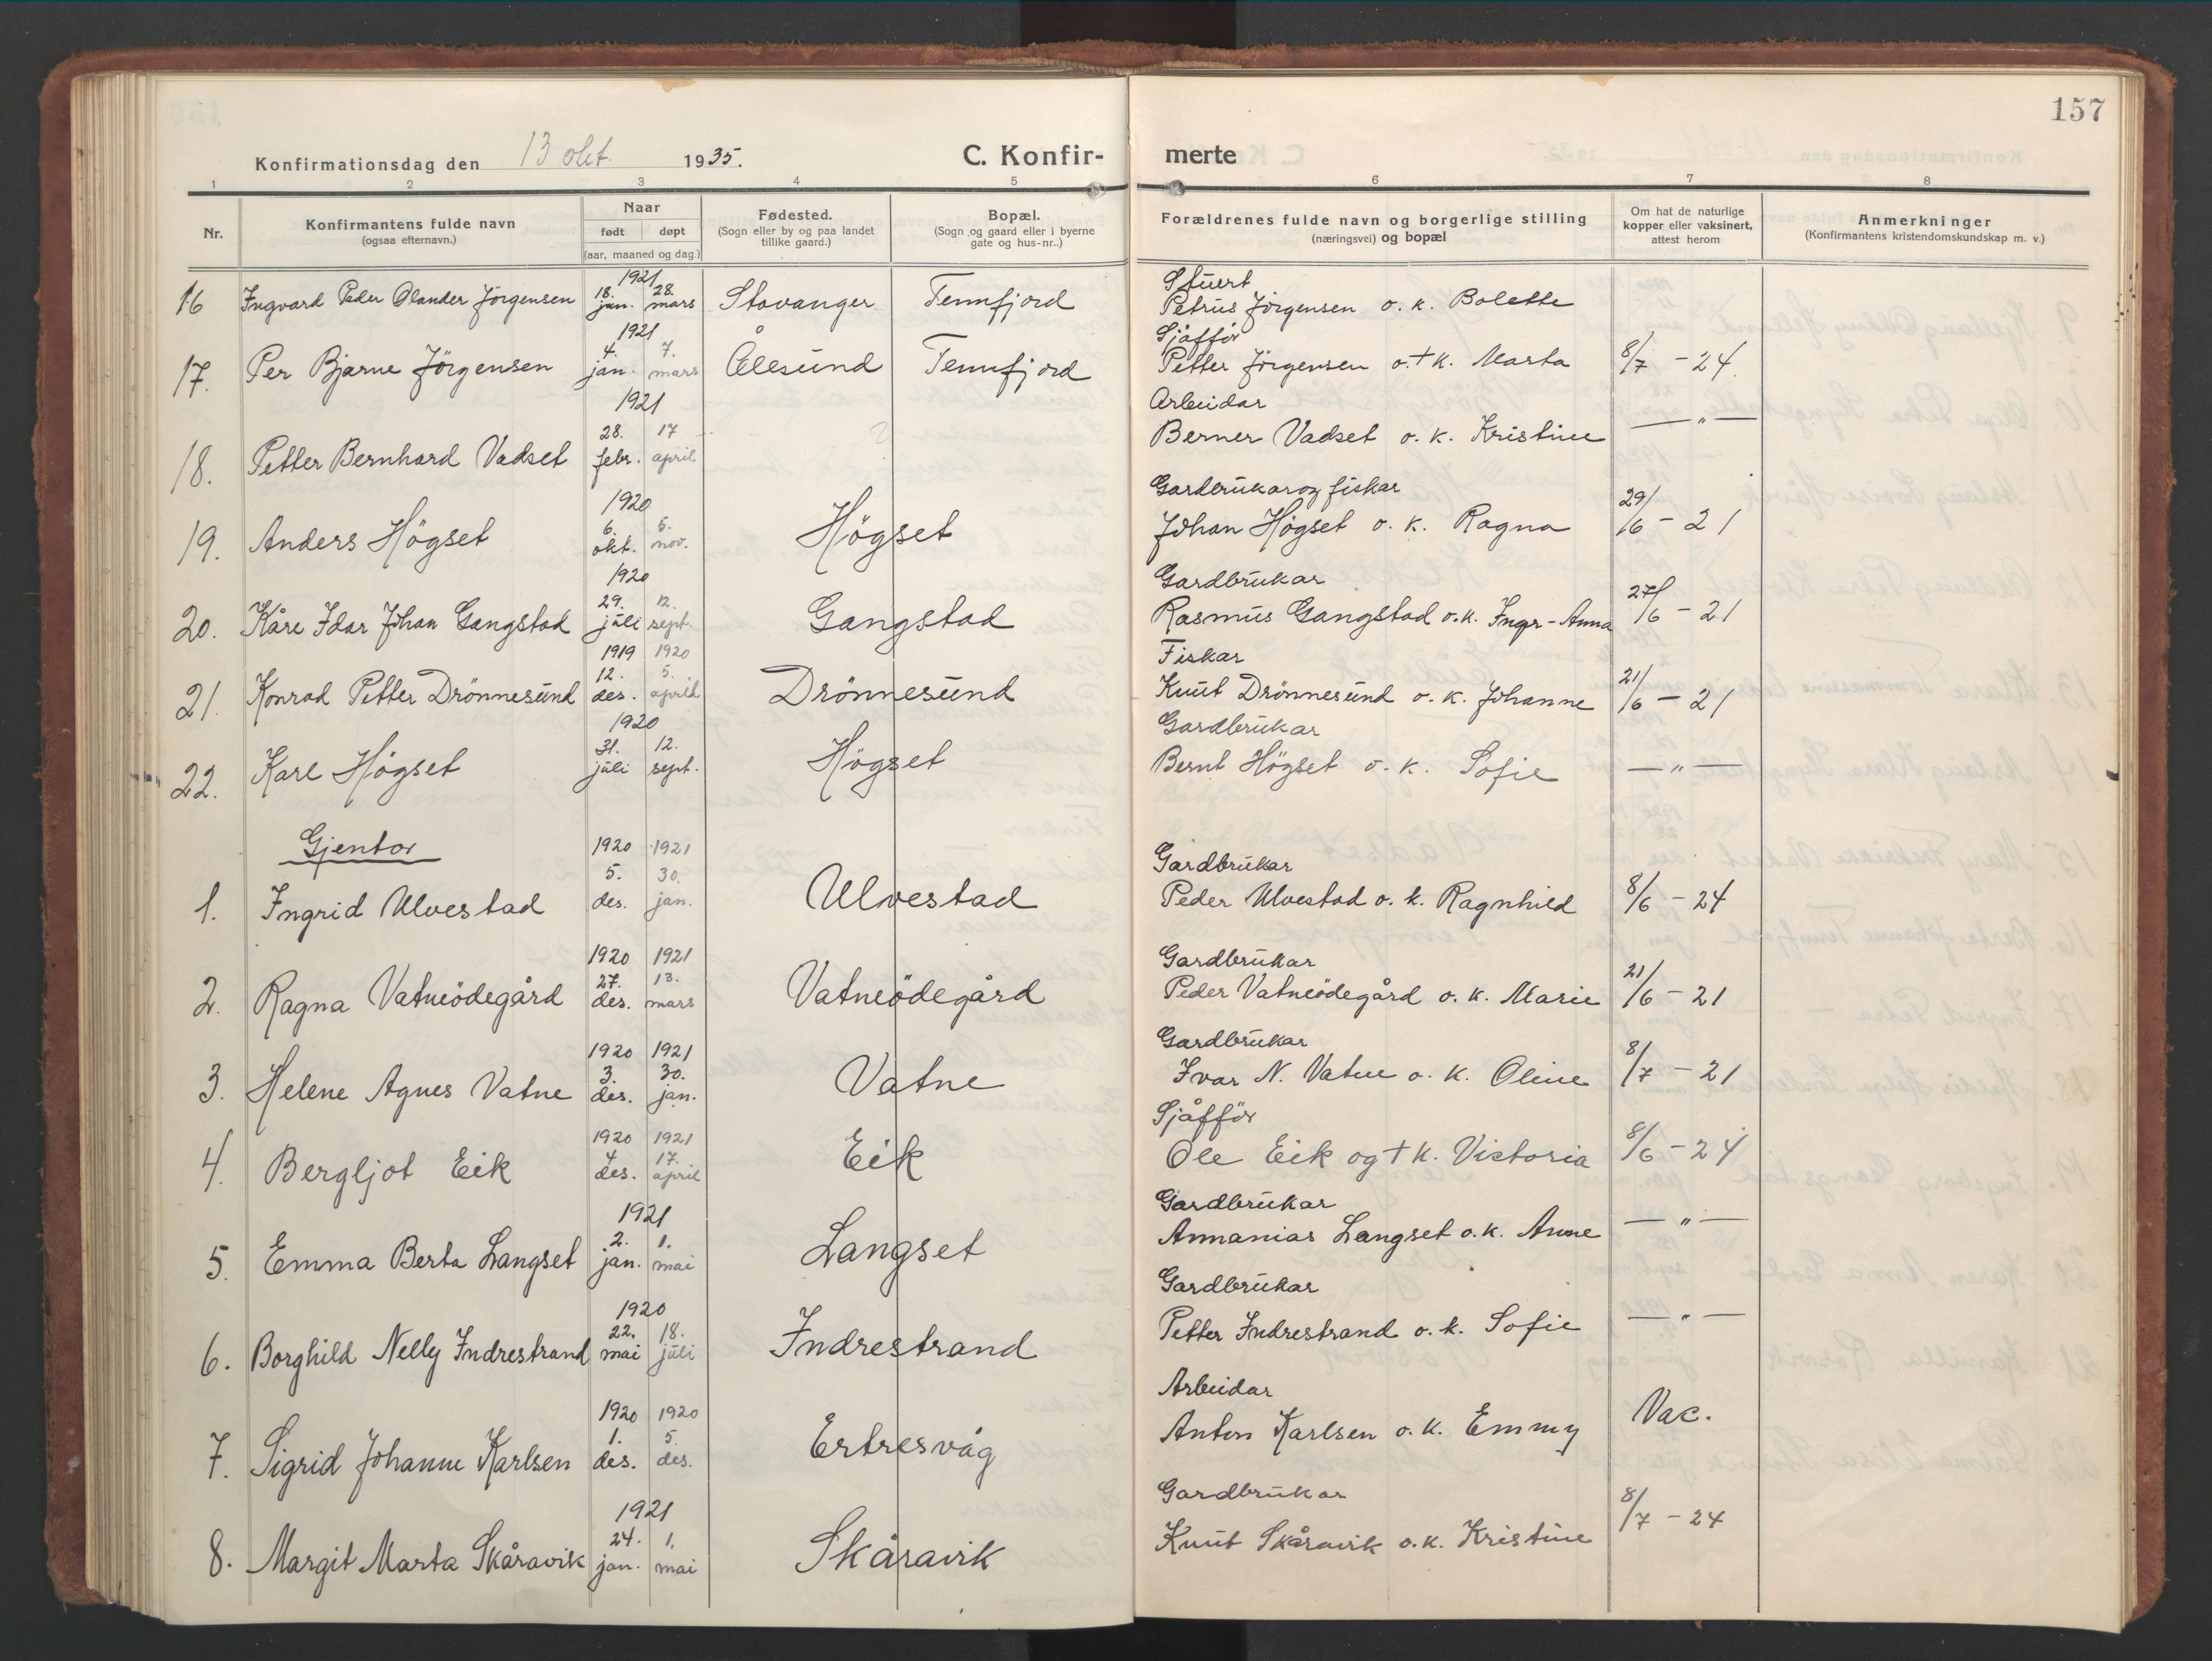 157
Konfirmationsdag den 13 okt. 1935. C. Konfir-merte
1 2 3 4 5 6 7 8
Nr. Konfirmantens fulde navn (ogsaa efternavn.) Naar født døpt (aar, maaned og dag.) Fødested. (Sogn eller by og paa landet tillike gaard.) Bopæl. (Sogn og gaard eller i byerne gate og hus-nr..) Forældrenes fulde navn og borgerlige stilling (næringsvei) og bopæl Om hat de naturlige kopper eller vaksinert, attest herom Anmerkninger (Konfirmantens kristendomskundskap m. v.)
1921 Stuert
16 Ingvard Peder Olander Jörgensen 18. jan. 28. mars Stavanger Tennfjord Petrus Jörgensen o. k. Bolette
1921 Sjåffør
17. Per Bjarne Jörgensen 4. jan. 7. mars Ålesund Tennfjord Petter Jörgensen o. + k. Marta 8/7 - 24
1921 Arbeidar
18. Petter Bernhard Vadset 28. febr. 17 april Berner Vadset o. k. Kristine — " —
1920 Gardbrukar og fiskar
19. Anders Högset 6. okt. 5. nov. Högset Johan Högset o. k. Ragna 29/6 - 21
1920 Gardbrukar
20. Kåre Idar Johan Gangstad 29. juli 12. sept. Gangstad Rasmus Gangstad o.k. Inga-Anna 27/6 - 21
1919 1920 Fiskar
21. Konrad Petter Drönnesund 12. des. 5. april Drönnesund Knut Drönnesund o. k. Johanne 21/6 - 21
1920 Gardbrukar
22. Karl Högset 31. juli 12. sept. Högset Bernt Högset o. k. Sofie — " —
Gjentor
1920 1921 Gardbrukar
1. Ingrid Ulvestad 5. des. 30. jan. Ulvestad Peder Ulvestad o. k. Ragnhild 8/6 - 24
1920 1921 Gardbrukar
2. Ragna Vatneödegård 27. des. 13. mars Vatneödegård Peder Vatneödegård o. k. Marie 21/6 - 21
1920 1921 Gardbrukar
3. Helene Agnes Vatne 3. des. 30. jan. Vatne Ivar N. Vatne o. k. Oline 8/7 - 21
1920 1921 Sjåfför
4. Bergljot Eik 4 des. 17. april Eik Ole Eik og + k. Victoria 8/6 - 24
1921 Gardbrukar
5. Emma Berta Langset 2. jan. 1. mai Langset Annanias Langset o.k. Anne — " —
1920 Gardbrukar
6. Borghild Nelly Indrestrand 22. mai 18. juli Indrestrand Petter Indrestrand o. k. Sofie — " —
1920 1920 Arbeidar
7. Sigrid Johanne Karlsen 1. des. 5. des. Ertresvåg Anton Karlsen o. k. Emmy Vac.
1921 Gardbrukar
8. Margit Marta Skåravik 24. jan. 1. mai Skåravik Knut Skåravik o.k. Kristine 8/7 - 24